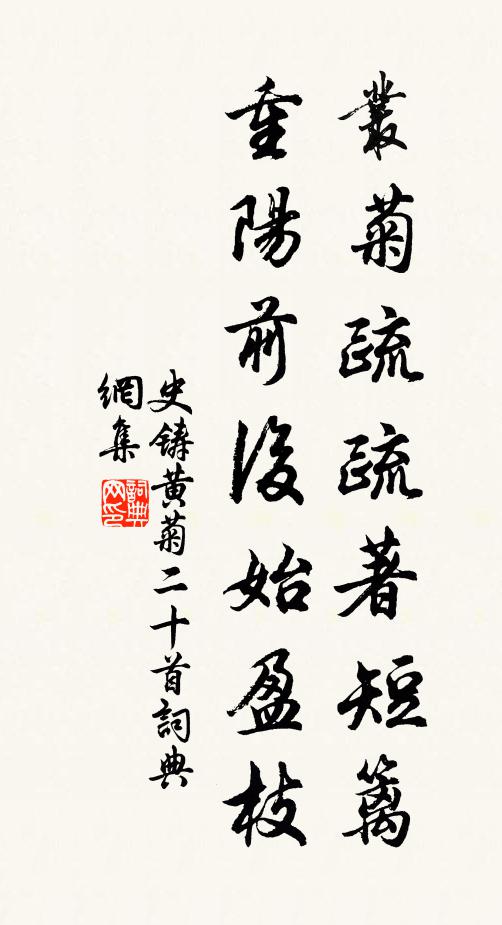 叢菊疏疏著短籬
重陽前後始盈枝
史鑄黃菊二十首詞典
網集
詞典網印